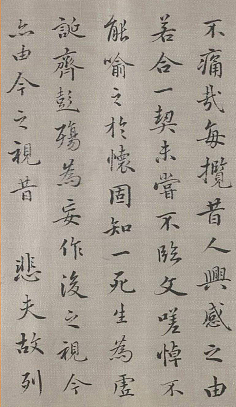 不痛哉每攬昔人興感之由
若合一契未嘗不臨文嗟悼不
能喻之於懷固知一死生為虛
誕齊彭殤為妄作後之視今
亦由今之視昔 悲夫故列